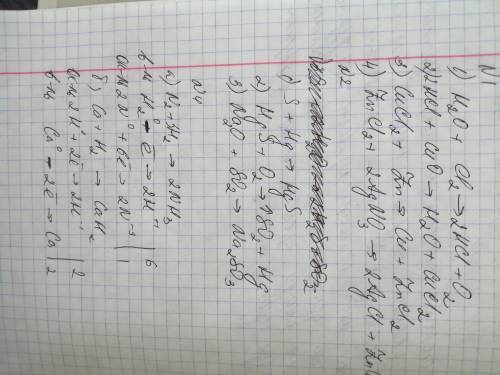 N1
1) H₂O + Cl₂ → 2HCl + O₂
2) 2HCl + CuO → H₂O + CuCl₂
3) CuCl₂ + Zn → Cu + ZnCl₂
4) ZnCl₂ + 2AgNO₃ → 2AgCl + Zn
N2
1) S + Hg → HgS
2) HgS + O₂ → SO₂ + Hg
3) Na₂O + SO₂ → Na₂SO₃
N4
а) N₂ + 3H₂ → 2NH₃
в-ль H₂⁰ - e → 2H⁺¹ | 6
ок-ль 2N⁰ + 6e → 2N⁻³ | 1
б) Ca + H₂ → CaH₂
ок-ль 2H + 2e → 2H⁻¹ | 2
в-ль Ca⁰ - 2e → Ca | 2